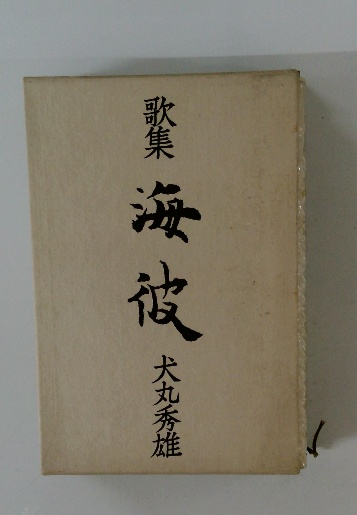 歌集
海彼
犬丸秀雄